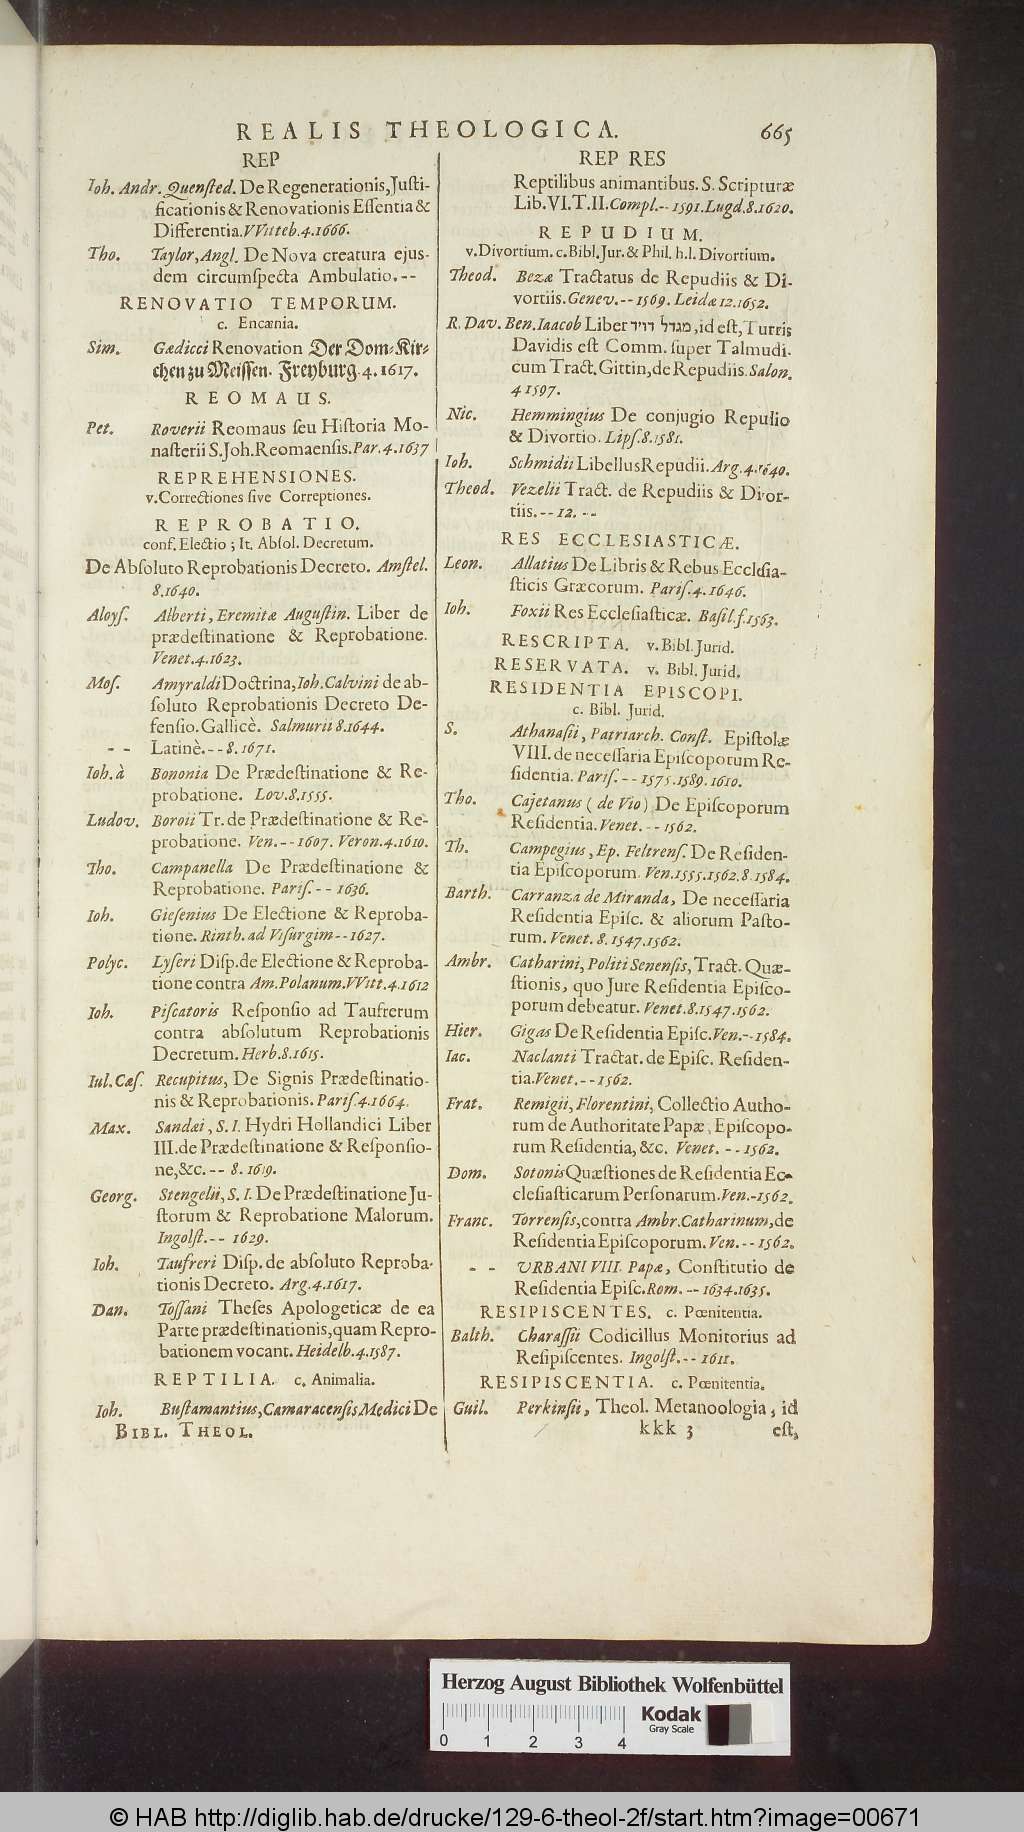 REALIS THEOLOGICA. 665
REP
Ioh. Andr. Quensted. De Regenerationis, Justi-
ficationis & Renovationis Essentia &
Differentia. VVitteb. 4. 1666.
Tho. Taylor, Angl. De Nova creatura ejus-
dem circumspecta Ambulatio. --
RENOVATIO TEMPORUM.
c. Encænia.
Sim. Gædicci Renovation Der Dom-Kir-
chen zu Meissen. Freyburg. 4. 1617.
REOMAUS.
Pet. Roverii Reomaus seu Historia Mo-
nasterii S. Joh. Reomaensis. Par. 4. 1637
REPREHENSIONES.
v. Correctiones sive Correptiones.
REPROBATIO.
conf. Electio ; It. Absol. Decretum.
De Absoluto Reprobationis Decreto. Amstel.
8. 1640.
Aloys. Alberti, Eremitæ Augustin. Liber de
prædestinatione & Reprobatione.
Venet. 4. 1623.
Mos. Amyraldi Doctrina, Ioh. Calvini de ab-
soluto Reprobationis Decreto De-
fensio. Gallicè. Salmurii 8. 1644.
- - Latinè. -- 8. 1671.
Ioh. à Bononia De Prædestinatione & Re-
probatione. Lov. 8. 1555.
Ludov. Boroii Tr. de Prædestinatione & Re-
probatione. Ven. -- 1607. Veron. 4. 1610.
Tho. Campanella De Prædestinatione &
Reprobatione. Paris. -- 1636.
Ioh. Giesenius De Electione & Reproba-
tione. Rinth. ad Visurgim -- 1627.
Polyc. Lyseri Disp. de Electione & Reproba-
tione contra Am. Polanum. VVitt. 4. 1612
Ioh. Piscatoris Responsio ad Taufrerum
contra absolutum Reprobationis
Decretum. Herb. 8. 1615.
Iul. Cæs. Recupitus, De Signis Prædestinatio-
nis & Reprobationis. Paris. 4. 1664.
Max. Sandæi, S. I. Hydri Hollandici Liber
III. de Prædestinatione & Responsio-
ne, &c. -- 8. 1619.
Georg. Stengelii, S. I. De Prædestinatione Ju-
storum & Reprobatione Malorum.
Ingolst. -- 1629.
Ioh. Taufreri Disp. de absoluto Reproba-
tionis Decreto. Arg. 4. 1617.
Dan. Tossani Theses Apologeticæ de ea
Parte prædestinationis, quam Repro-
bationem vocant. Heidelb. 4. 1587.
REPTILIA. c. Animalia.
Ioh. Bustamantius, Camaracensis Medici De
BIBL. THEOL.
REP RES
Reptilibus animantibus. S. Scripturæ
Lib. VI. T. II. Compl. -- 1591. Lugd. 8. 1620.
REPUDIUM.
v. Divortium. c. Bibl. Jur. & Phil. h. l. Divortium.
Theod. Bezæ Tractatus de Repudiis & Di-
vortiis. Genev. -- 1569. Leidæ 12. 1652.
R. Dav. Ben. Iaacob Liber מגדל דויד, id est, Turris
Davidis est Comm. super Talmudi-
cum Tract. Gittin, de Repudiis. Salon.
4 1597.
Nic. Hemmingius De conjugio Repudio
& Divortio. Lips. 8. 1581.
Ioh. Schmidii Libellus Repudii. Arg. 4. 1640.
Theod. Vezelii Tract. de Repudiis & Divor-
tiis. -- 12. --
RES ECCLESIASTICÆ.
Leon. Allatius De Libris & Rebus Ecclesia-
sticis Græcorum. Paris. 4. 1646.
Ioh. Foxii Res Ecclesiasticæ. Basil. f. 1563.
RESCRIPTA. v. Bibl. Jurid.
RESERVATA. v. Bibl. Jurid.
RESIDENTIA EPISCOPI.
c. Bibl. Jurid.
S. Athanasii, Patriarch. Const. Epistolæ
VIII. de necessaria Episcoporum Re-
sidentia. Paris. -- 1575. 1589. 1610.
Tho. Cajetanus ( de Vio ) De Episcoporum
Residentia. Venet. -- 1562.
Th. Campegius, Ep. Feltrens. De Residen-
tia Episcoporum. Ven. 1555. 1562. 8. 1584.
Barth. Carranza de Miranda, De necessaria
Residentia Episc. & aliorum Pasto-
rum. Venet. 8. 1547. 1562.
Ambr. Catharini, Politi Senensis, Tract. Quæ-
stionis, quo Jure Residentia Episco-
porum debeatur. Venet. 8. 1547. 1562.
Hier. Gigas De Residentia Episc. Ven. -- 1584.
Iac. Naclanti Tractat. de Episc. Residen-
tia. Venet. -- 1562.
Frat. Remigii, Florentini, Collectio Autho-
rum de Authoritate Papæ, Episcopo-
rum Residentia, &c. Venet. -- 1562.
Dom. Sotonis Quæstiones de Residentia Ec-
clesiasticarum Personarum. Ven. - 1562.
Franc. Torrensis, contra Ambr. Catharinum, de
Residentia Episcoporum. Ven. -- 1562.
- - URBANI VIII. Papæ, Constitutio de
Residentia Episc. Rom. -- 1634. 1635.
RESIPISCENTES. c. Pœnitentia.
Balth. Charassii Codicillus Monitorius ad
Resipiscentes. Ingolst. -- 1611.
RESIPISCENTIA. c. Pœnitentia.
Guil. Perkinsii, Theol. Metanoologia, id
kkk 3 est,
Herzog August Bibliothek Wolfenbüttel
Kodak
Gray Scale
0 1 2 3 4
© HAB http://diglib.hab.de/drucke/129-6-theol-2f/start.htm?image=00671